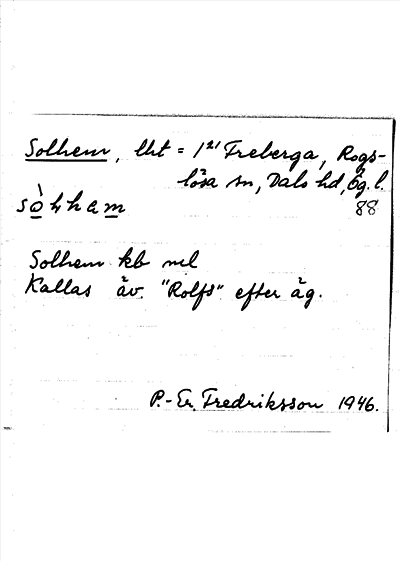 Solhem, lht = 1²¹ Freberga, Rogs-
lösa sn, Dals hd, Ög. l.
88
sòhham
Solhem kb
Kallas äv. "Rolfs" efter äg.
P.-Er. Fredriksson 1946.